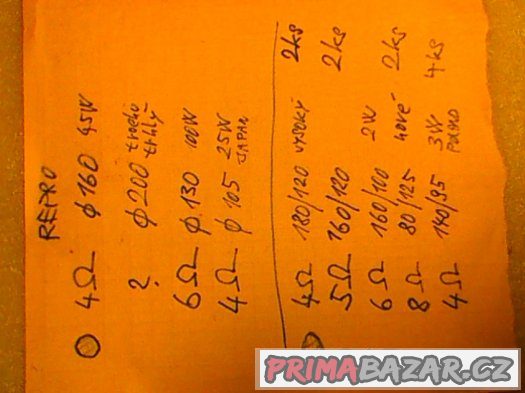 REPRO
4Ω ϕ160 45W
? ϕ200 trochu trhlý
6Ω ϕ130 100W
4Ω ϕ105 25W JAPAN
4Ω 180/120 VYSOKÝ 2ks
5Ω 160/120 2ks
6Ω 160/100 2W
8Ω 80/125 nové 2ks
4Ω 140/95 3W 4ks
PRIMABAZAR.CZ